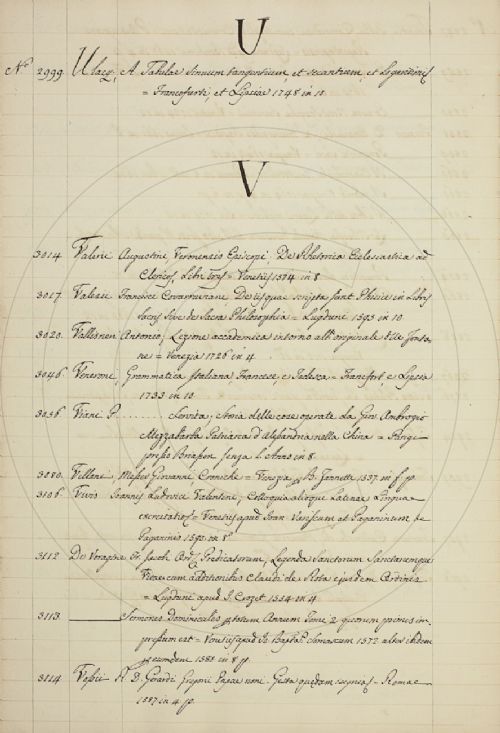 U
Nº 2999. Ulacq, A. Tabulae Sinuum tangentium, et secantium, et Logarithmi
= Francofurti, et Lipsiae 1748 in
V
3014. Valerii Augustini, Veronensis Episcopi, De Rhetorica Ecclesiastica ad
Clericos, Libri tres = Venetiis 1574 in 8
3017. Valesii Francisci De iis quae scripta sunt Phisice in Libris
sacris sive de Sacra Philosophia = Lugduni 1595 in
3020. Vallisneri Antonio, Lezione accademica intorno all' origine delle Fonta-
ne = Venezia 1726 in 4
3046. Veneroni, Grammatica Italiana, Francese, e Tedesca = Francfort e Lipsia
1733 in
3056. Viani P. ........ Servita, Storia delle cose operate da Gio. Ambrogio
Mezzabarba Patriarca d'Alessandria nella China = Parigi
presso Briasson senza l'Anno in 8
3080. Villani, Messer Giovanni, Croniche = Venezia per B. Zannetti 1537 in f. p.
3106. Vivis Joannis Ludovici Valentini, Colloquia sive Latinae Linguae
exercitatio = Venetiis apud Joan. Variscum et Paganinum de
Paganinis 1590 in 8º
3112. De Voragine Fr. Jacobi Ord. Predicatorum, Legenda Sanctorum Sanctarumque
cum additionibus Claudii de Rota ejusdem Ordinis
= Lugduni apud J. Crozet 1554 in 4
3113. ———— Sermones Dominicales per totum Annum Tomi 2 quorum primus im-
pressum est = Venetiis apud Jo. Bapta. Somascum 1572 alter ibidem
per eumdem 1581 in 8 p.
3114. Vossii R. D. Gerardi Gregorii Papae noni Gesta quaedam = Romae
1587 in 4 p.